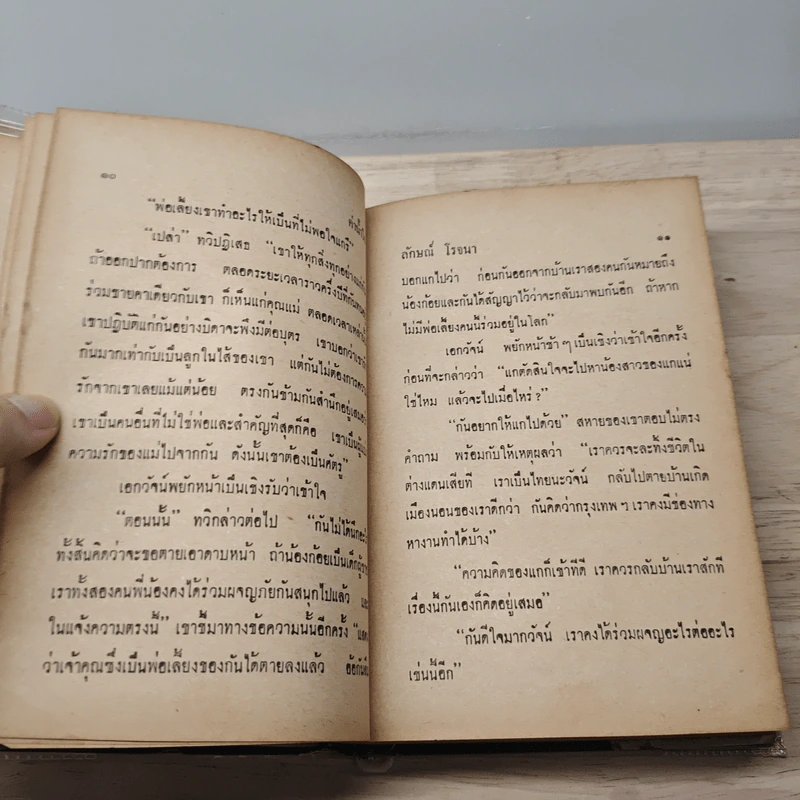 ๑๐
“พ่อเลี้ยงเขาทำอะไรให้เป็นที่ไม่พอใจแกรึ
“เปล่า” ทวิปฏิเสธ “เขาให้ทุกสิ่งทุกอย่างแก่กัน
ถ้าออกปากต้องการ ตลอดระยะเวลาราวครึ่งปีที่กัน
ร่วมชายคาเดียวกับเขา ก็เห็นแก่คุณแม่ ตลอดเวลา
เขาปฏิบัติแก่กันอย่างบิดาจะพึงมีต่อบุตร เขาบอกว่า
กันมากเท่ากับเป็นลูกในไส้ของเขา แต่กันไม่ต้องการ
รักจากเขาเลยแม้แต่น้อย ตรงกันข้ามกันสำนึกอยู่เสมอ
เขาเป็นคนอื่นที่ไม่ใช่พ่อและสำคัญที่สุดก็คือ เขาเป็น
ความรักของแม่ไปจากกัน ดังนั้นเขาต้องเป็นศัตรู”
เอกวัจน์พยักหน้าเป็นเชิงรับว่าเข้าใจ
“ตอนนั้น” ทวิกล่าวต่อไป “กันไม่ได้นึกอะไร
ทั้งสิ้นคิดว่าจะขอตายเอาดาบหน้า ถ้าน้องก้อยเป็นเด็ก
เราทั้งสองคนพี่น้องคงได้ร่วมผจญภัยกันสนุกไปแล้ว
ในแจ้งความตรงนี้” เขาชี้มาทางข้อความนั้นอีกครั้ง
ว่าเจ้าคุณซึ่งเป็นพ่อเลี้ยงของกันได้ตายลงแล้ว
ลักษณ์ โรจนา
๑๑
บอกแกไปว่า ก่อนกันออกจากบ้านเราสองคนกันหมายถึง
น้องก้อยและกันได้สัญญาไว้ว่าจะกลับมาพบกันอีก ถ้าหาก
ไม่มีพ่อเลี้ยงคนนี้ร่วมอยู่ในโลก”
เอกวัจน์ พยักหน้าช้า ๆ เป็นเชิงว่าเข้าใจอีกครั้ง
ก่อนที่จะกล่าวว่า “แกตัดสินใจจะไปหาน้องสาวของแกแน่
ใช่ไหม แล้วจะไปเมื่อไหร่ ?”
“กันอยากให้แกไปด้วย” สหายของเขาตอบไม่ตรง
คำถาม พร้อมกับให้เหตุผลว่า “เราควรจะละทิ้งชีวิตใน
ต่างแดนเสียที เราเป็นไทยนะวัจน์ กลับไปตายบ้านเกิด
เมืองนอนของเราดีกว่า กันคิดว่ากรุงเทพ ฯ เราคงมีช่องทาง
หางานทำได้บ้าง”
“ความคิดของแกก็เข้าทีดี เราควรกลับบ้านเราสักที
เรื่องนี้กันเองก็คิดอยู่เสมอ”
“กันดีใจมากวัจน์ เราคงได้ร่วมผจญอะไรต่ออะไร
เช่นนี้อีก”